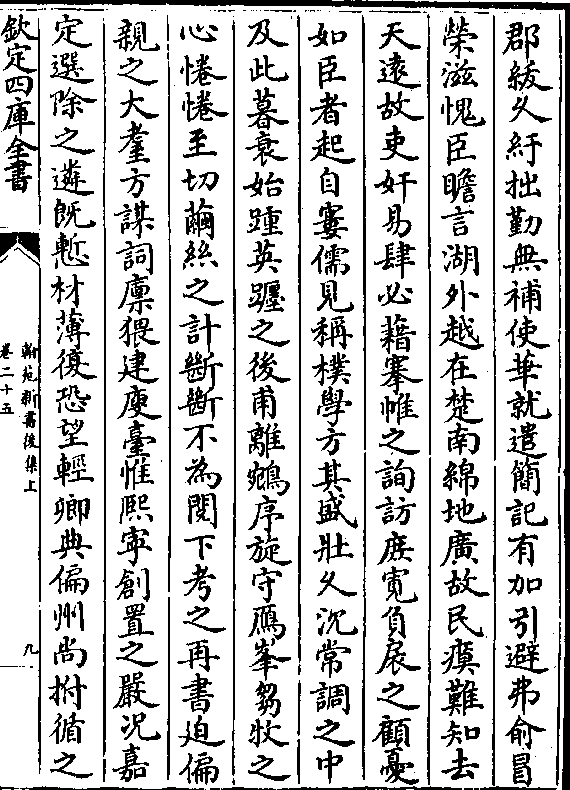 郡紱久紆拙勤無補使華就遣簡記有加引避弗俞冒
榮滋愧臣瞻言湖外越在楚南綿地廣故民瘼難知去
天遠故吏奸易肆必藉搴帷之詢訪庶寛負扆之顧憂
如臣者起自寠儒見稱樸學方其盛壯久沉常調之中
及此暮衰始踵英躔之後甫離鵷序旋守鴈峯芻牧之
心惓惓至切繭絲之計斷斷不為閱下考之再書廹偏
親之大耋方謀詞廩猥建庾臺惟熙寧創置之嚴況嘉
定選除之遴既慙材薄復恐望輕卿典偏州尚拊循之
欽定四庫全書
翰苑新書後集上
卷二十五
九